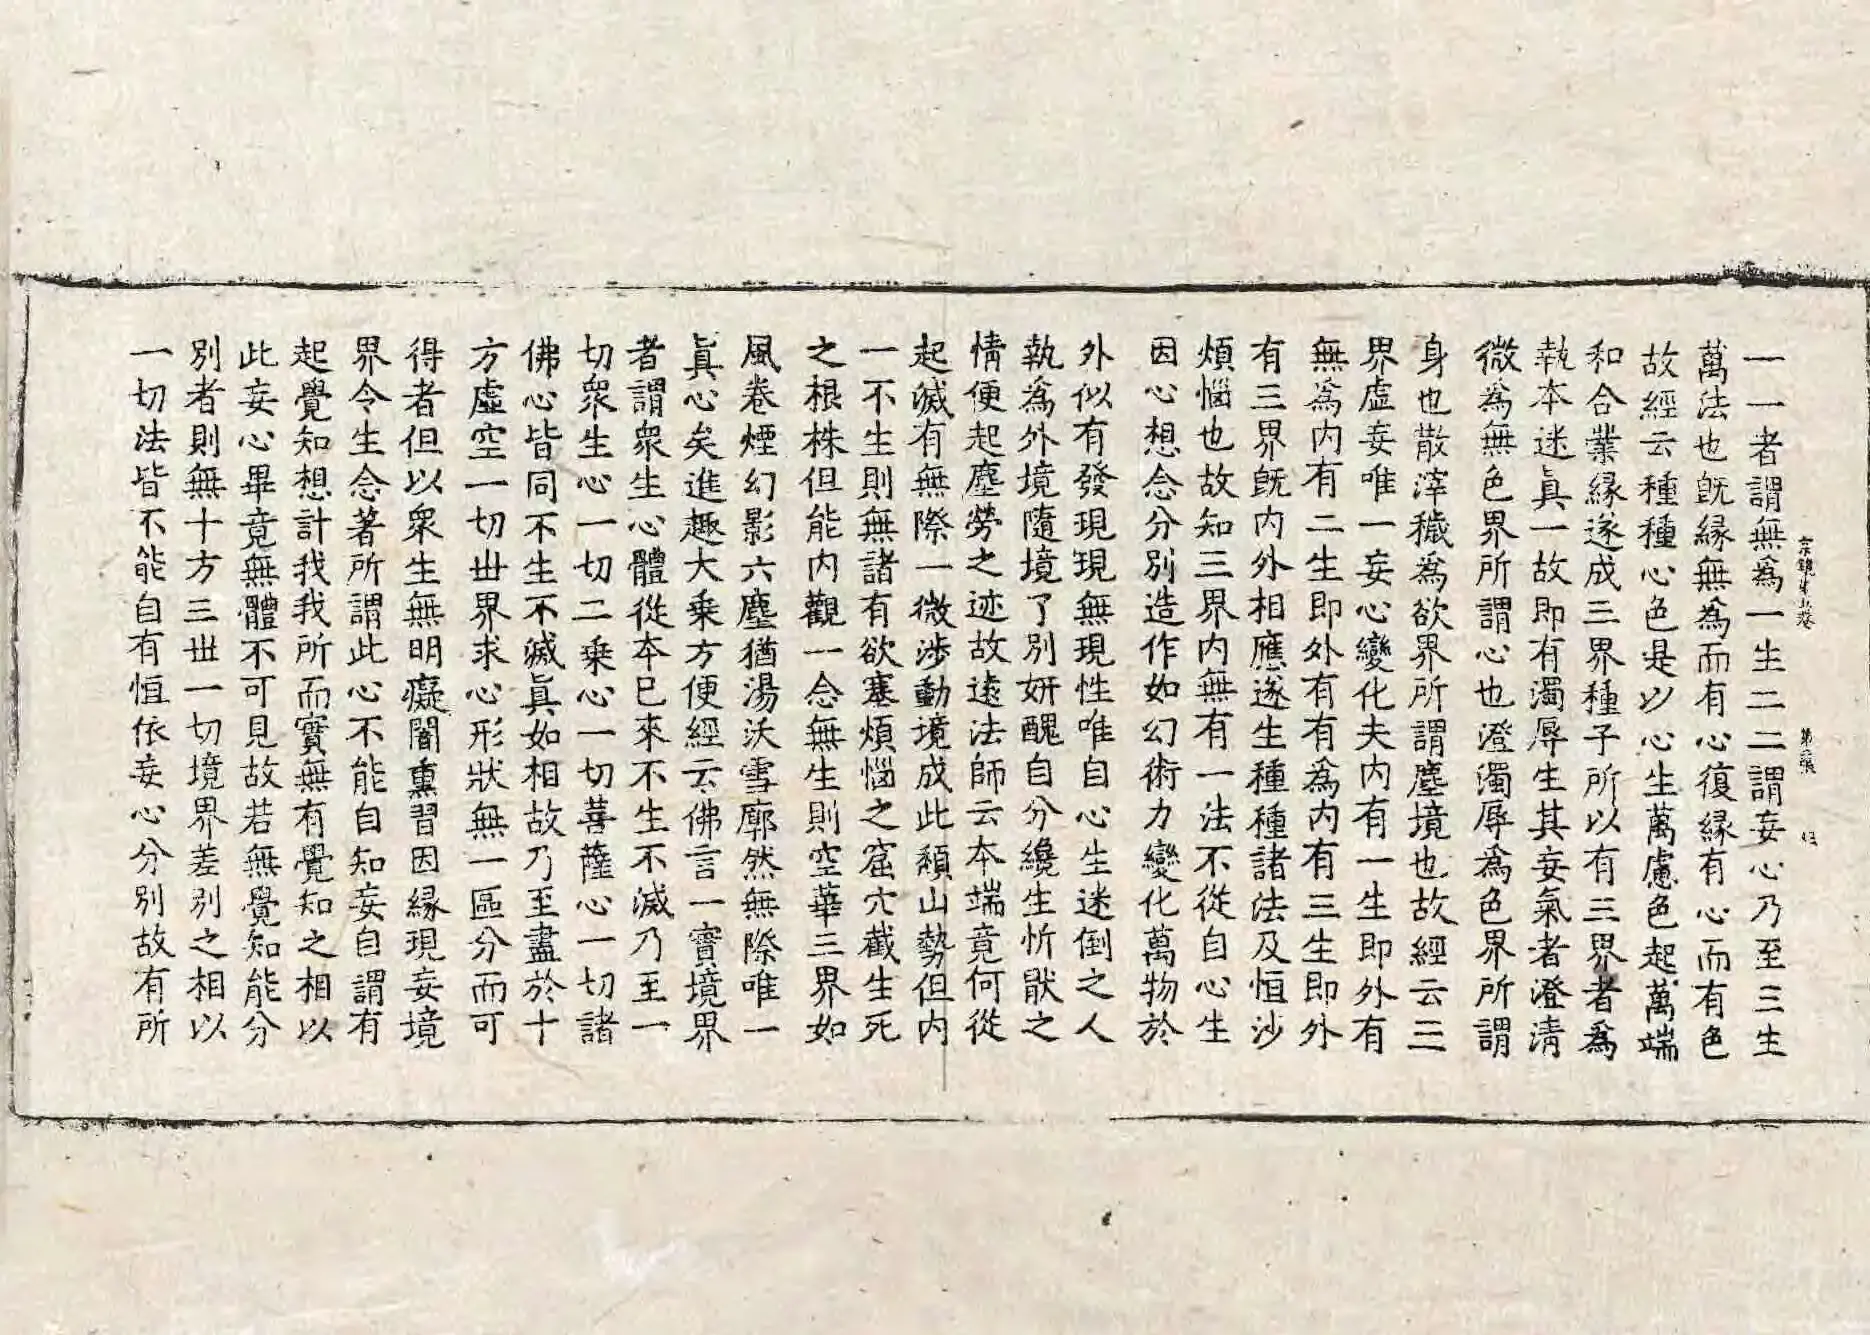 一一者謂無爲一生二二謂妄心乃至三生
宗鏡第五卷 第二張
萬法也既緣無爲而有心復緣有心而有色
故經云種種心色是以心生萬慮色起萬端
和合業緣遂成三界種子所以有三界者爲
執本迷眞一故即有濁辱生其妄氣者澄清
微爲無色界所謂心也澄濁辱爲色界所謂
身也散滓穢爲欲界所謂塵境也故經云三
界虛妄唯一妄心變化夫內有一生即外有
無爲內有二生即外有有爲內有三生即外
有三界既內外相應遂生種種諸法及恒沙
煩惱也故知三界內無有一法不從自心生
因心想念分別造作如幻術力變化萬物於
外似有發現現無現性唯自心生迷倒之人
執爲外境隨境了別妍醜自分纔生忻猒之
情便起塵勞之迹故遠法師云本端竟何從
起滅有無際一微涉動境成此頹山勢但內
一不生則無諸有欲塞煩惱之窟穴截生死
之根株但能內觀一念無生則空華三界如
風卷煙幻影六塵猶湯沃雪廓然無際唯一
眞心矣進趣大乘方便經云佛言一實境界
者謂衆生心體從本已來不生不滅乃至一
切衆生心一切二乘心一切菩薩心一切諸
佛心皆同不生不滅眞如相故乃至盡於十
方虛空一切世界求心形狀無一區分而可
得者但以衆生無明癡闇熏習因緣現妄境
界令生念著所謂此心不能自知妄自謂有
起覺知想計我我所而實無有覺知之相以
此妄心畢竟無體不可見故若無覺知能分
別者則無十方三世一切境界差別之相以
一切法皆不能自有恒依妄心分別故有所